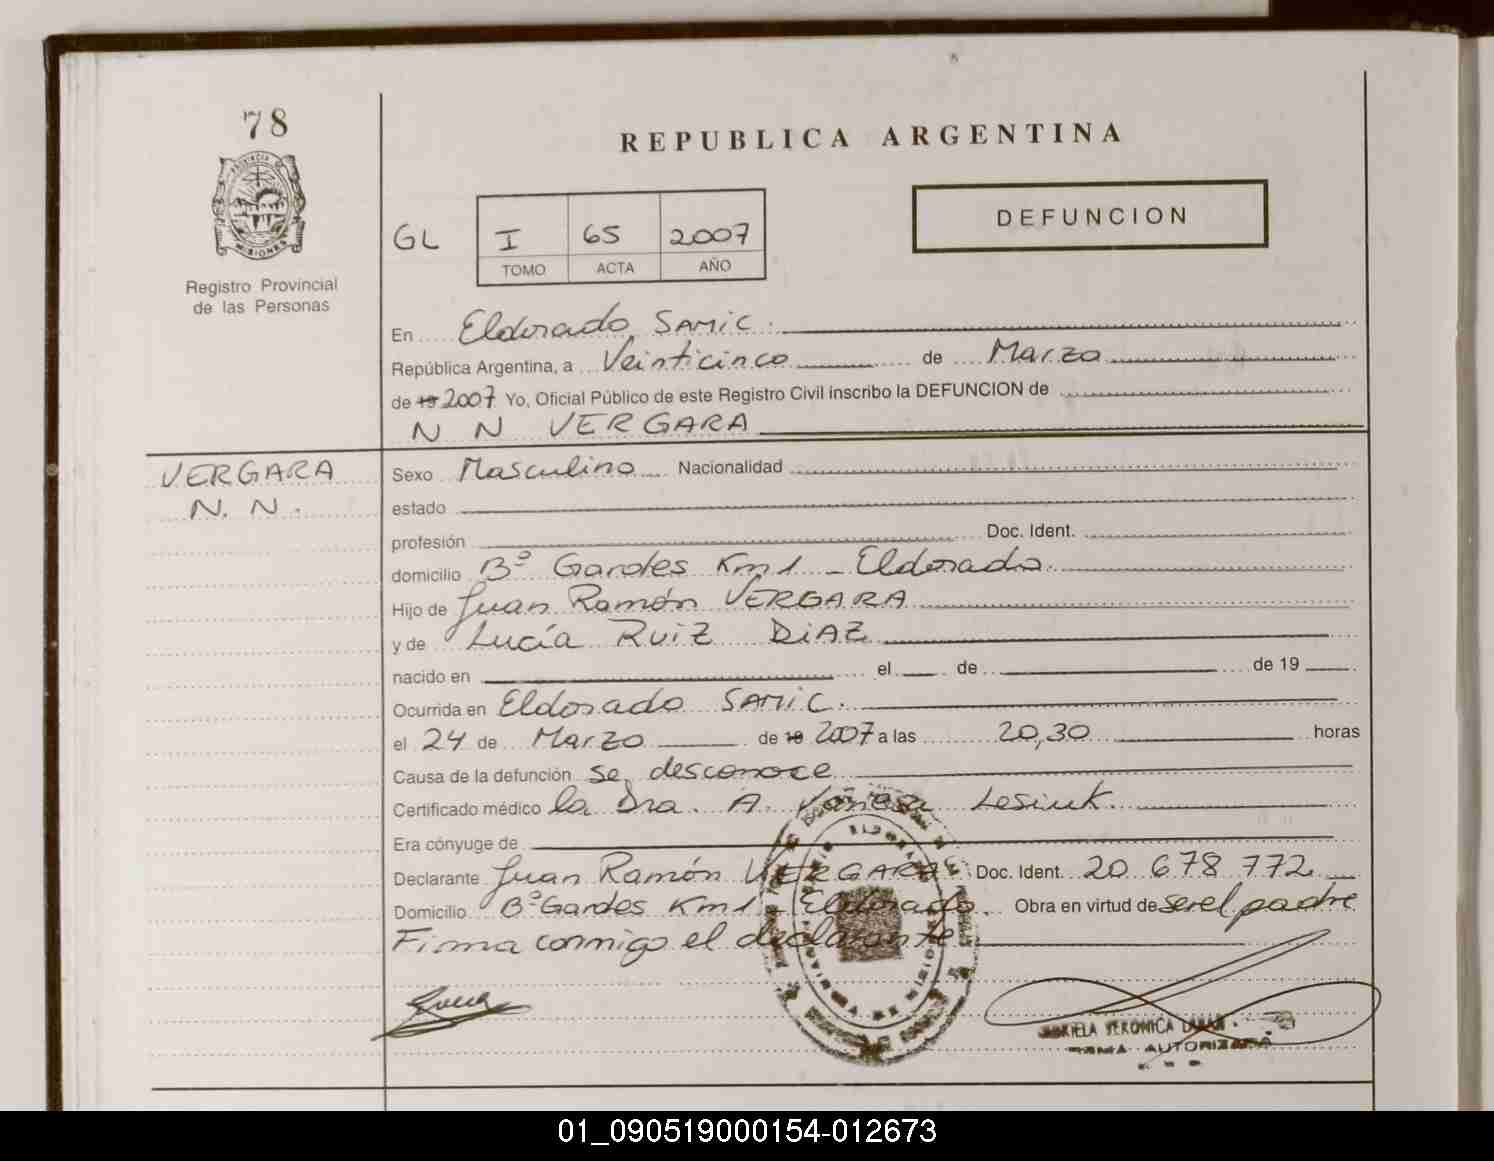 78
REPUBLICA ARGENTINA
PROVINCIA DE MISIONES
Registro Provincial
de las Personas
GL I 65 2007
TOMO ACTA AÑO
DEFUNCION
En Eldorado SAMIC.
República Argentina, a Veinticinco de Marzo
de 19 2007 Yo, Oficial Público de este Registro Civil inscribo la DEFUNCION de
N N VERGARA
VERGARA
N. N.
Sexo Masculino Nacionalidad
estado
profesión Doc. Ident.
domicilio Bº Gardes Km 1 - Eldorado.
Hijo de Juan Ramón VERGARA
y de Lucía RUIZ DIAZ
nacido en el de de 19
Ocurrida en Eldorado SAMIC.
el 24 de Marzo de 19 2007 a las 20,30 horas
Causa de la defunción se desconoce
Certificado médico la Dra. A. Vanesa Lesiuk.
Era cónyuge de
Declarante Juan Ramón VERGARA Doc. Ident. 20 678 772
Domicilio Bº Gardes Km 1 - Eldorado. Obra en virtud de ser el padre
Firma conmigo el declarante
VERONICA
FIRMA AUTORIZADA
01_090519000154-012673